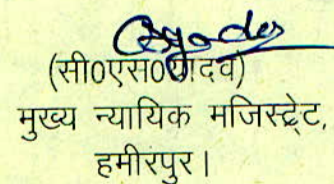 (सी०एस०यादव)
मुख्य न्यायिक मजिस्ट्रेट,
हमीरपुर।